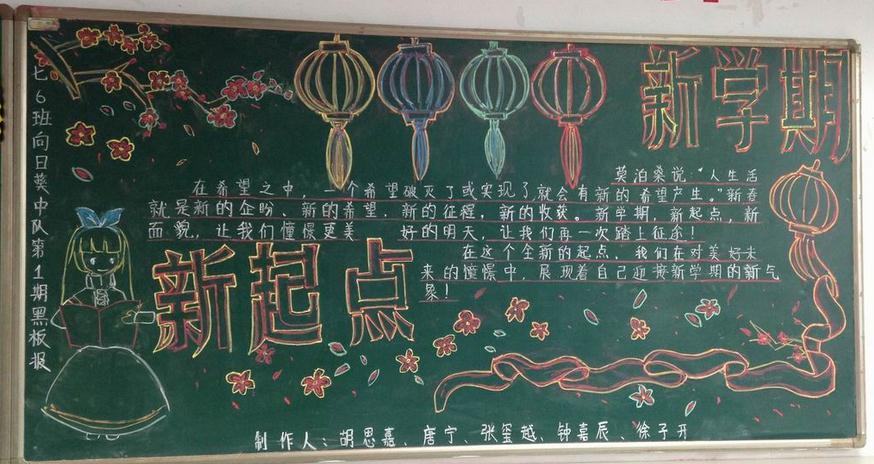 七6班向日葵中队第1期黑板报
新学期
莫泊桑说:“人生活
在希望之中,一个希望破灭了或实现了,就会有新的希望产生。”新春
就是新的企盼、新的希望,新的征程,新的收获。新学期,新起点,新
面貌,让我们憧憬更美 好的明天,让我们再一次踏上征途!
新起点
在这个全新的起点,我们在对美好未
来的憧憬中,展现着自己迎接新学期的新气
象!
制作人:胡思嘉、唐宁、张玺越、钟嘉辰、徐子开